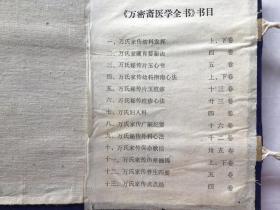 《万密斋医学全书》书目
一、万氏家传幼科发挥 上、下卷
二、万氏家藏育婴秘诀 四卷
三、万氏秘传片玉心书 五卷
四、万氏家传幼科指南心法 上、下卷
五、万氏秘传片玉痘疹 十三卷
六、万氏家传痘疹心法 廿三卷
七、万氏妇人科 四卷
八、万氏家传广嗣纪要 十六卷
九、万氏秘传外科心法 十二卷
十、万氏家传保命歌括 卅五卷
十一、万氏家传伤寒摘锦 上、下卷
十二、万氏家传养生四要 五卷
十三、万氏家传点点经 四卷